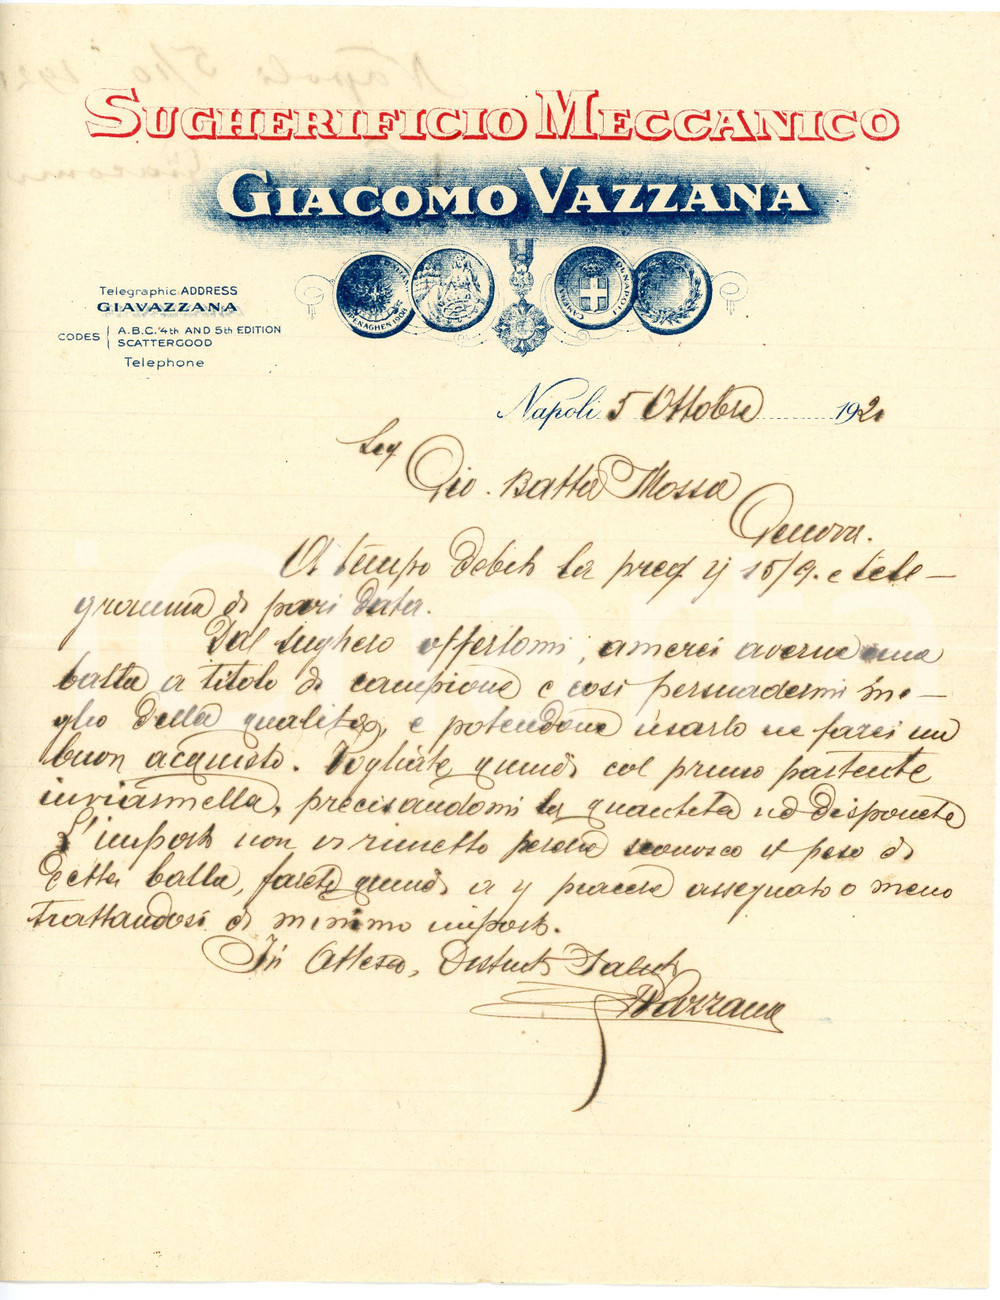 SUGHERIFICIO MECCANICO
GIACOMO VAZZANA
Telegraphic ADDRESS
GIAVAZZANA
CODES A.B.C. 4th AND 5th EDITION
SCATTERGOOD
Telephone
Napoli 5 Ottobre 192
Gio. Batta Mossa
Genova.
A tempo debito la preg 15/9. e tele-
gramma di pari data.
Dal sughero offertomi, amerei averne una
balla a titolo di campione e così persuadermi me-
glio della qualità, e potendone usarlo ne farei un
buon acquisto. Vogliate quindi col primo partente
inviarmella, precisandomi la quantità ne disponete
L'importo non vi rimetto perchè sconosco il peso di
detta balla, farete quindi a piacere assegnato o meno
trattandosi di minimo importo.
In Attesa, Distinti Saluti
Vazzana